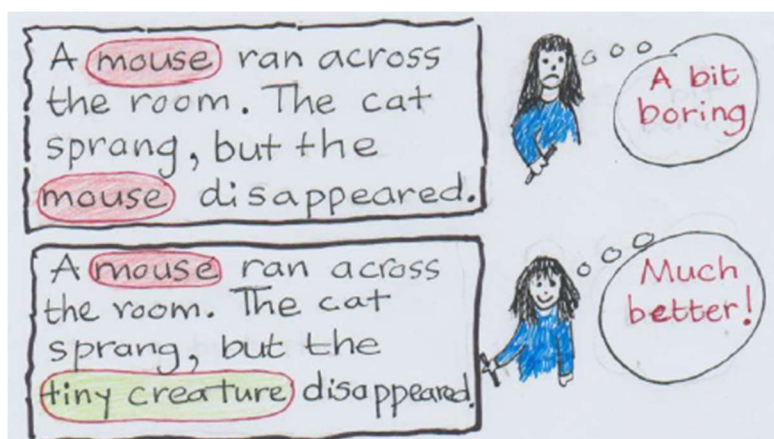 A mouse ran across
the room. The cat
sprang, but the
mouse disappeared.
A bit
boring
A mouse ran across
the room. The cat
sprang, but the
tiny creature disappeared.
Much
better!